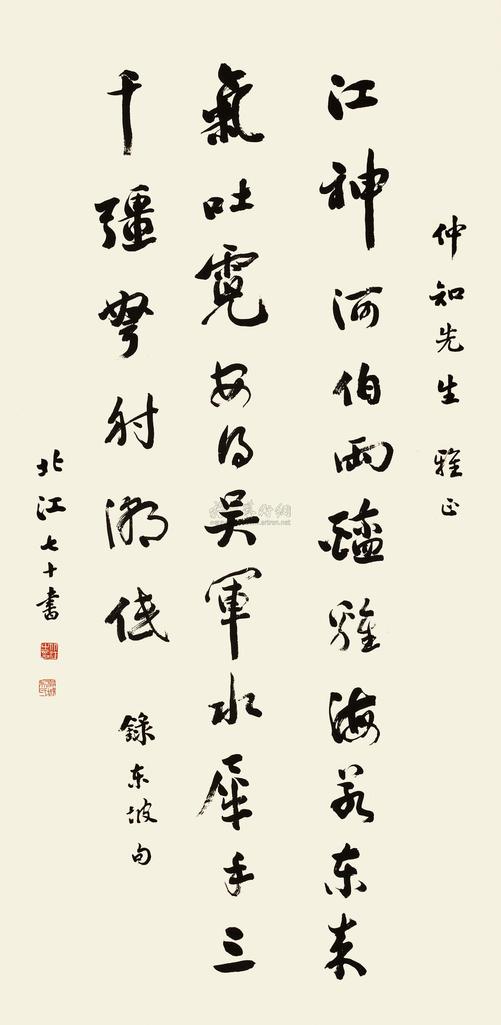 仲知先生 雅正
江神河伯兩醯雞海若東來
氣吐霓安得吳軍水犀手三
千彊弩射潮低 錄東坡句
北江七十書